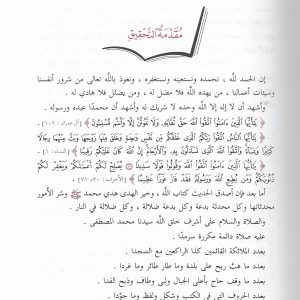 مُقَدِّمَةُ التَّحْقِيقِ
إن الحمد لله ، نحمده ونستعينه ونستغفره ، ونعوذ بالله تعالى من شرور أنفسنا
وسيئات أعمالنا ، من يهده الله فلا مضل له ، ومن يضلل فلا هادي له .
وأشهد أن لا إله إلا الله وحده لا شريك له وأشهد أن محمدًا عبده ورسوله .
﴿ يَا أَيُّهَا الَّذِينَ آمَنُوا اتَّقُوا اللَّهَ حَقَّ تُقَاتِهِ وَلَا تَمُوتُنَّ إِلَّا وَأَنتُم مُّسْلِمُونَ ﴾ [آل عمران : ١٠٢] .
﴿ يَا أَيُّهَا النَّاسُ اتَّقُوا رَبَّكُمُ الَّذِي خَلَقَكُم مِّن نَّفْسٍ وَاحِدَةٍ وَخَلَقَ مِنْهَا زَوْجَهَا وَبَثَّ مِنْهُمَا رِجَالًا
كَثِيرًا وَنِسَاءً وَاتَّقُوا اللَّهَ الَّذِي تَسَاءَلُونَ بِهِ وَالْأَرْحَامَ إِنَّ اللَّهَ كَانَ عَلَيْكُمْ رَقِيبًا ﴾ [النساء : ١] .
﴿ يَا أَيُّهَا الَّذِينَ آمَنُوا اتَّقُوا اللَّهَ وَقُولُوا قَوْلًا سَدِيدًا ۝ يُصْلِحْ لَكُمْ أَعْمَالَكُمْ وَيَغْفِرْ لَكُمْ
ذُنُوبَكُمْ وَمَن يُطِعِ اللَّهَ وَرَسُولَهُ فَقَدْ فَازَ فَوْزًا عَظِيمًا ﴾ [الأحزاب : ٧٠، ٧١] .
أما بعد فإن أصدق الحديث كتاب الله ، وخير الهدى هدي محمد ﷺ وشر الأمور
محدثاتها وكل محدثة بدعة وكل بدعة ضلالة ، وكل ضلالة في النار .
والصلاة والسلام على أشرف خلق الله سيدنا محمد المصطفى .
عليه صلاة دائمة مكررة سرمدًا .
بعدد الملائكة القائمين كذا الراكعين مع السجدا .
بعدد ما هبَّ ريح على بلدة وما طار طائر وما غردا .
بعدد ما وقف حاج بأعلى الجبال ولبى وطاف وذبح الفدا .
بعدد الحروف التي في الكتب وشكل ولفظ وما جوّدا .